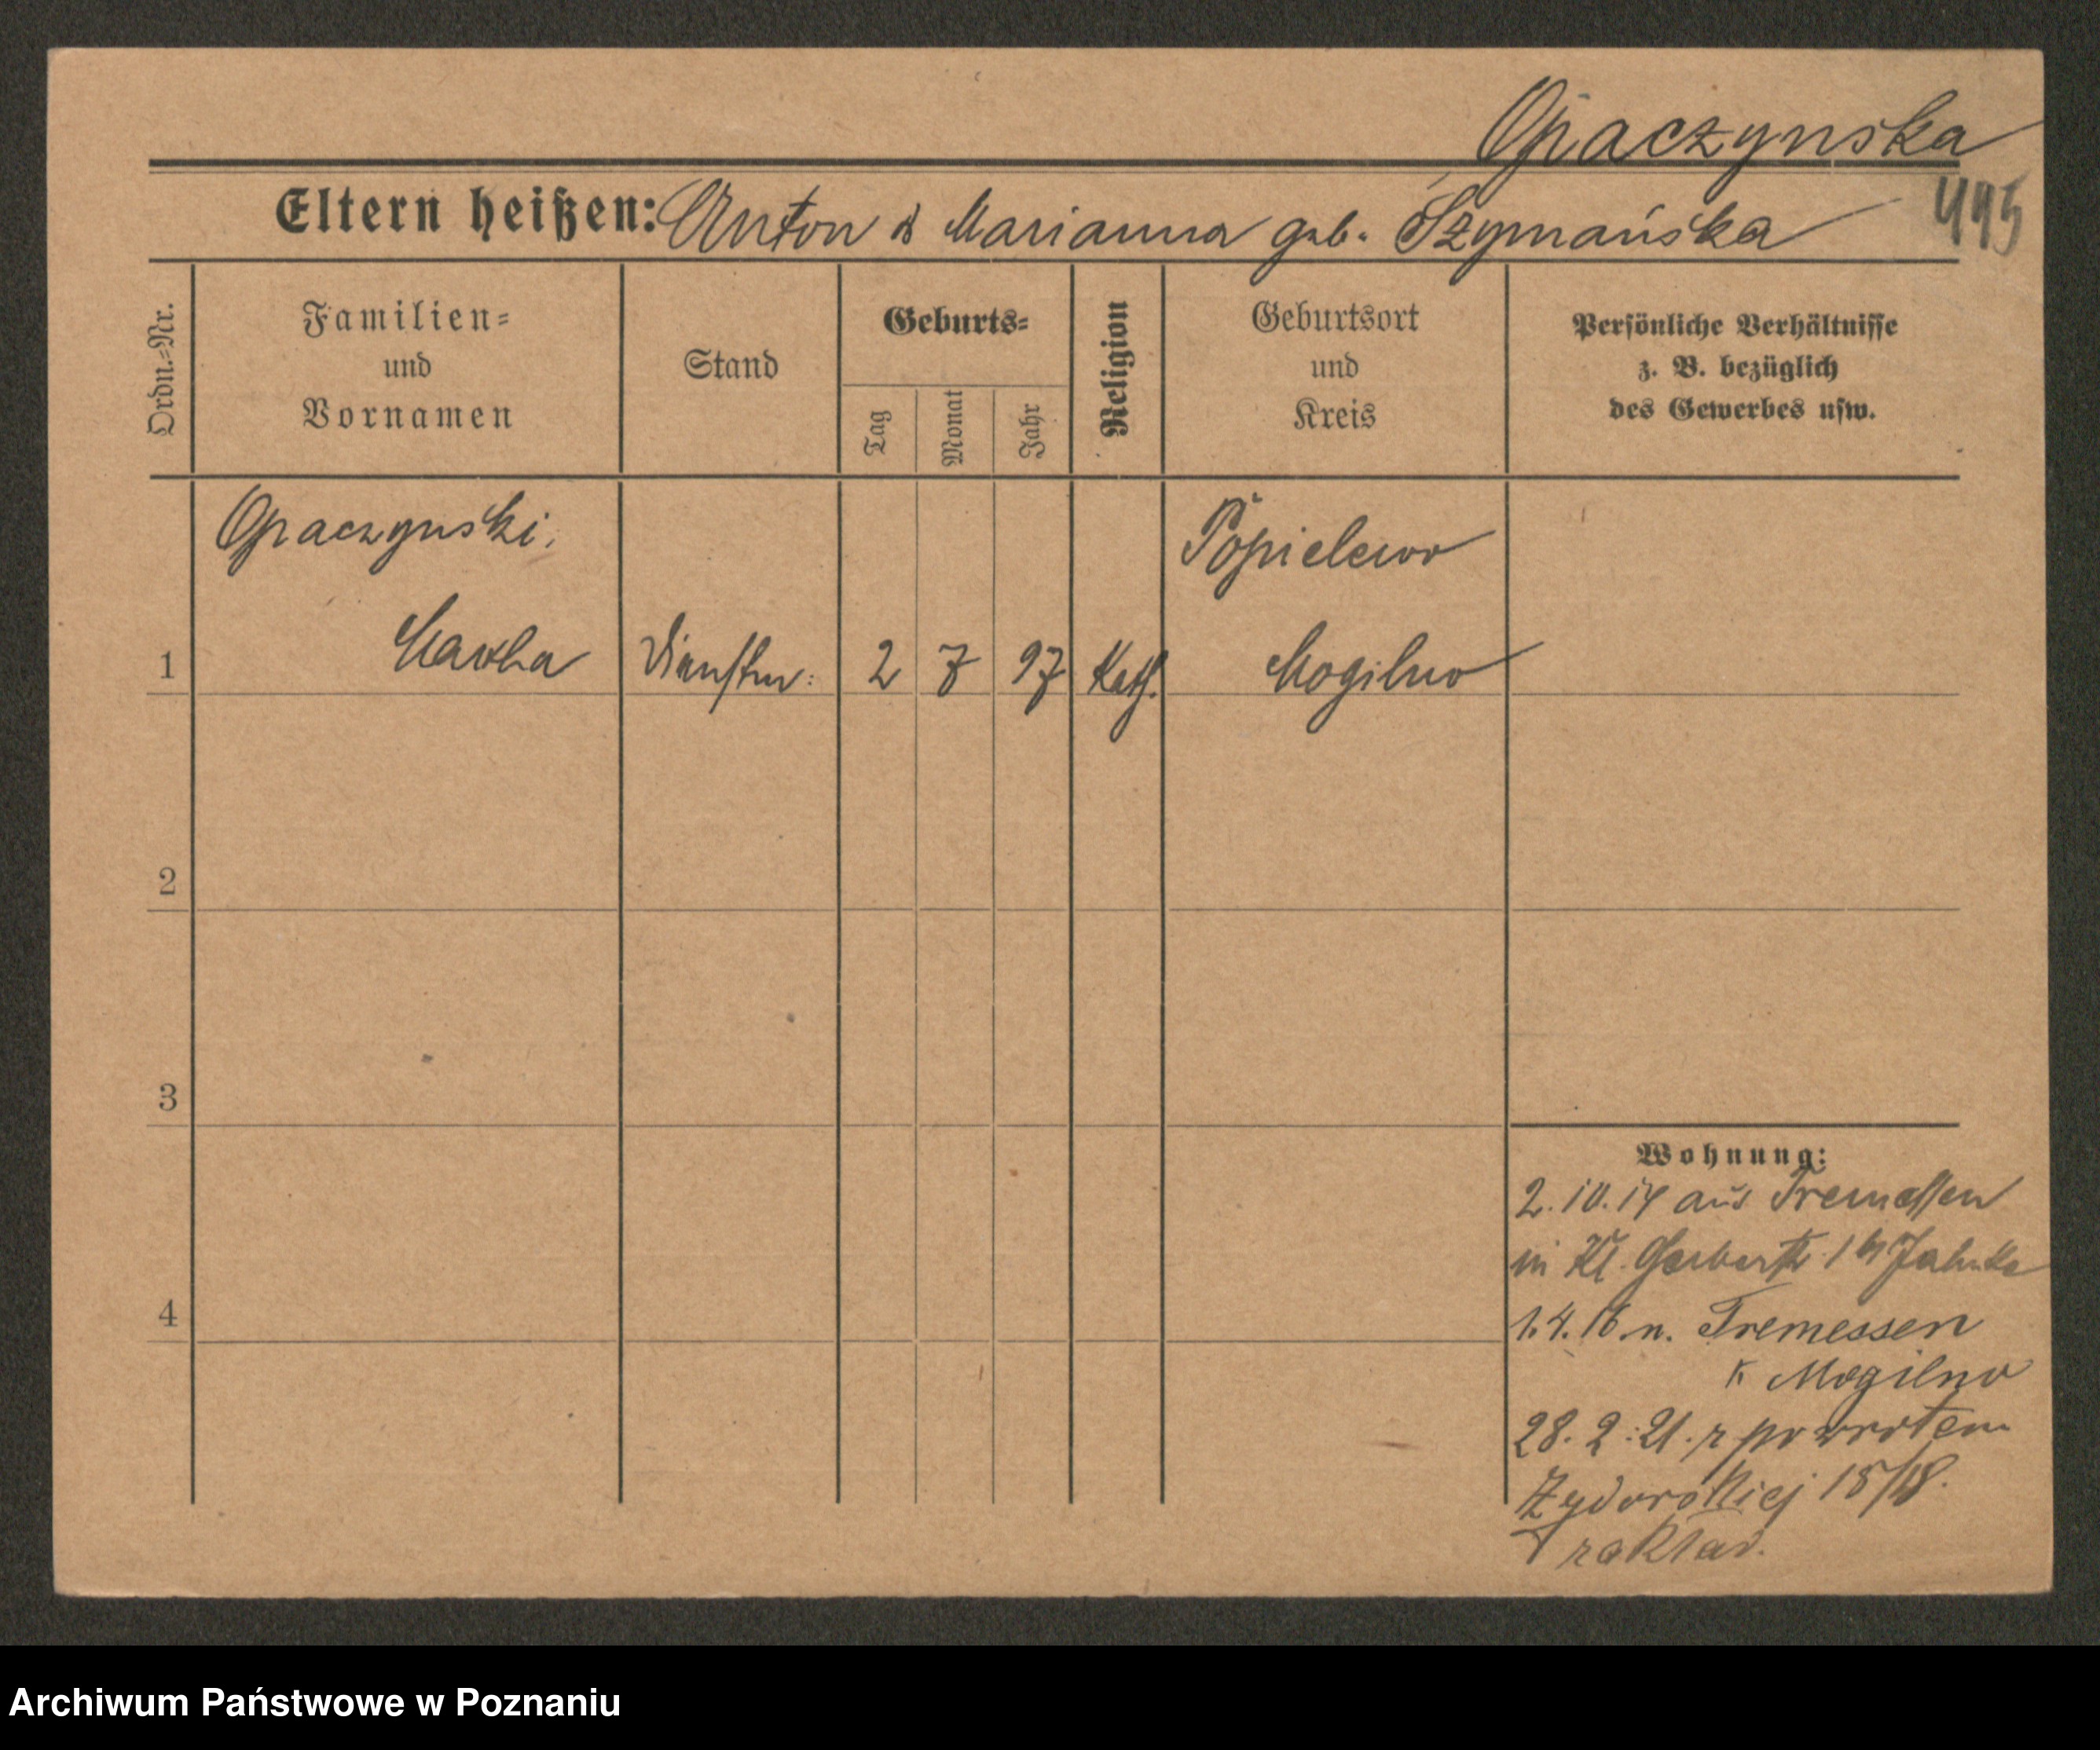 Opaczynska
445
Eltern heißen: Anton & Marianna geb. Szymańska
Ordn.=Nr.
Familien=
und
Vornamen
Stand
Geburts=
Tag
Monat
Jahr
Religion
Geburtsort
und
Kreis
Persönliche Verhältnisse
z. B. bezüglich
des Gewerbes usw.
Opaczynski
Popielewo
1 Martha 2 7 97 Kath. Mogilno
2
3
4
Wohnung:
2.10.14 aus Tremessen
in Kl. Gerberstr
1.4.16 n. Tremessen
K Mogilno
28.2.21. z powrotem
Zydowskiej 15/18.
Archiwum Państwowe w Poznaniu